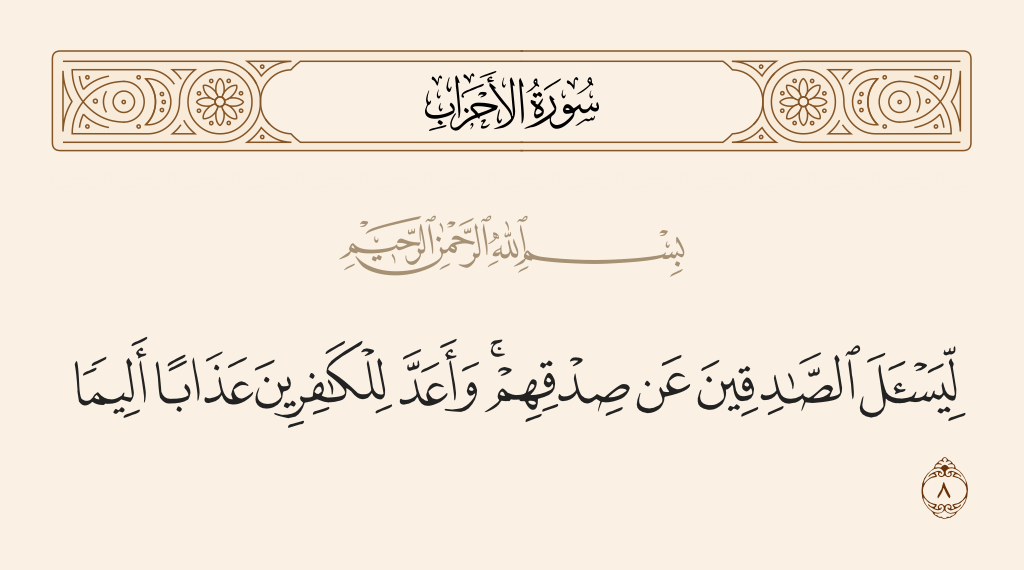 سُورَةُ الأَحْزَابِ
بِسْمِ ٱللَّهِ ٱلرَّحْمَٰنِ ٱلرَّحِيمِ
لِّيَسْـَٔلَ ٱلصَّـٰدِقِينَ عَن صِدْقِهِمْ ۚ وَأَعَدَّ لِلْكَـٰفِرِينَ عَذَابًا أَلِيمًا
٨